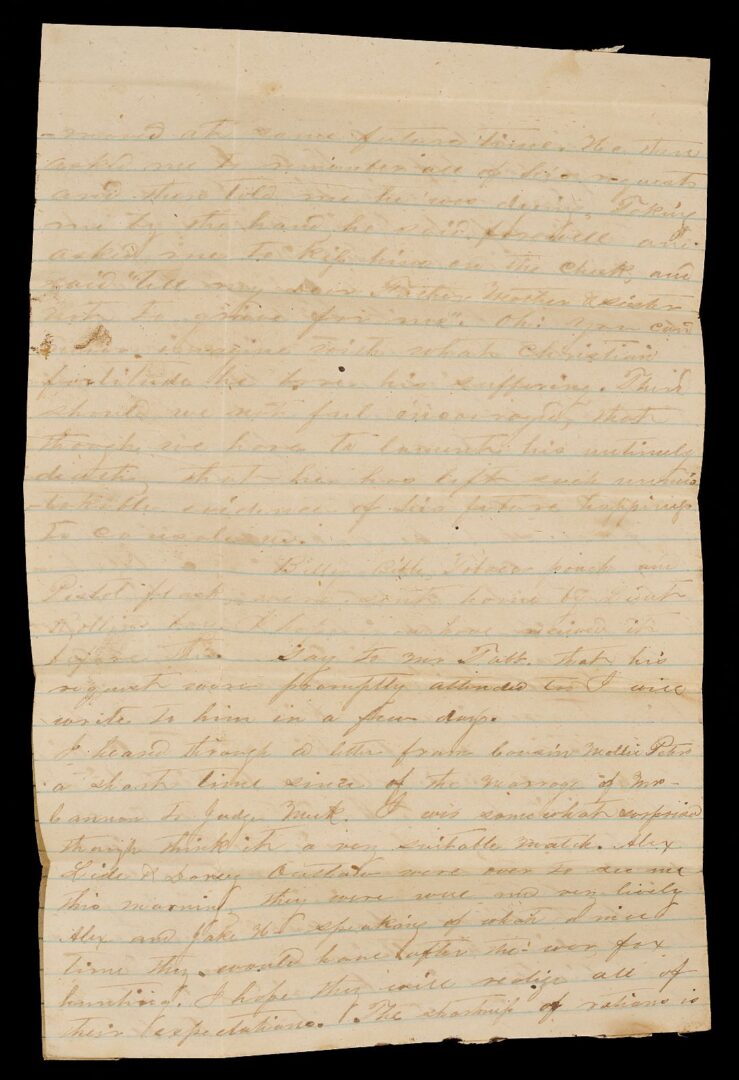 -moved at some future time. He then
asked me to remember all of his requests
and then told me he was dying. Taking
me by the hand he said farewell and
asked me to kiss him on the cheek, and
said "tell my dear Father Mother & sister
not to grieve for me". Oh! You can
never imagine with what Christian
fortitude he bore his suffering. Then
should we not feel encouraged, that
though we have to lament his untimely
death, that he has left such unmis
-takable evidence of his future happiness
to console us.
Billy's Bible, Tobacco pouch and
Pistol flask were sent home by Lieut
I hope you have received it
before this. Say to Mr. Talk that his
request were promptly attended to. I will
write to him in a few days.
I heard through a letter from Cousin Mollie Peters
a short time since of the marrage of Mrs-
Cannon to Judge Meek. I was somewhat surprised
though think it a very suitable match. Alex
Lide & Dorsey were over to see me
this morning they were well and very lively
Alex and Jake speaking of what a nice
time they would have after the war, fox
hunting. I hope they will realize all of
their expectations. The shortness of rations is